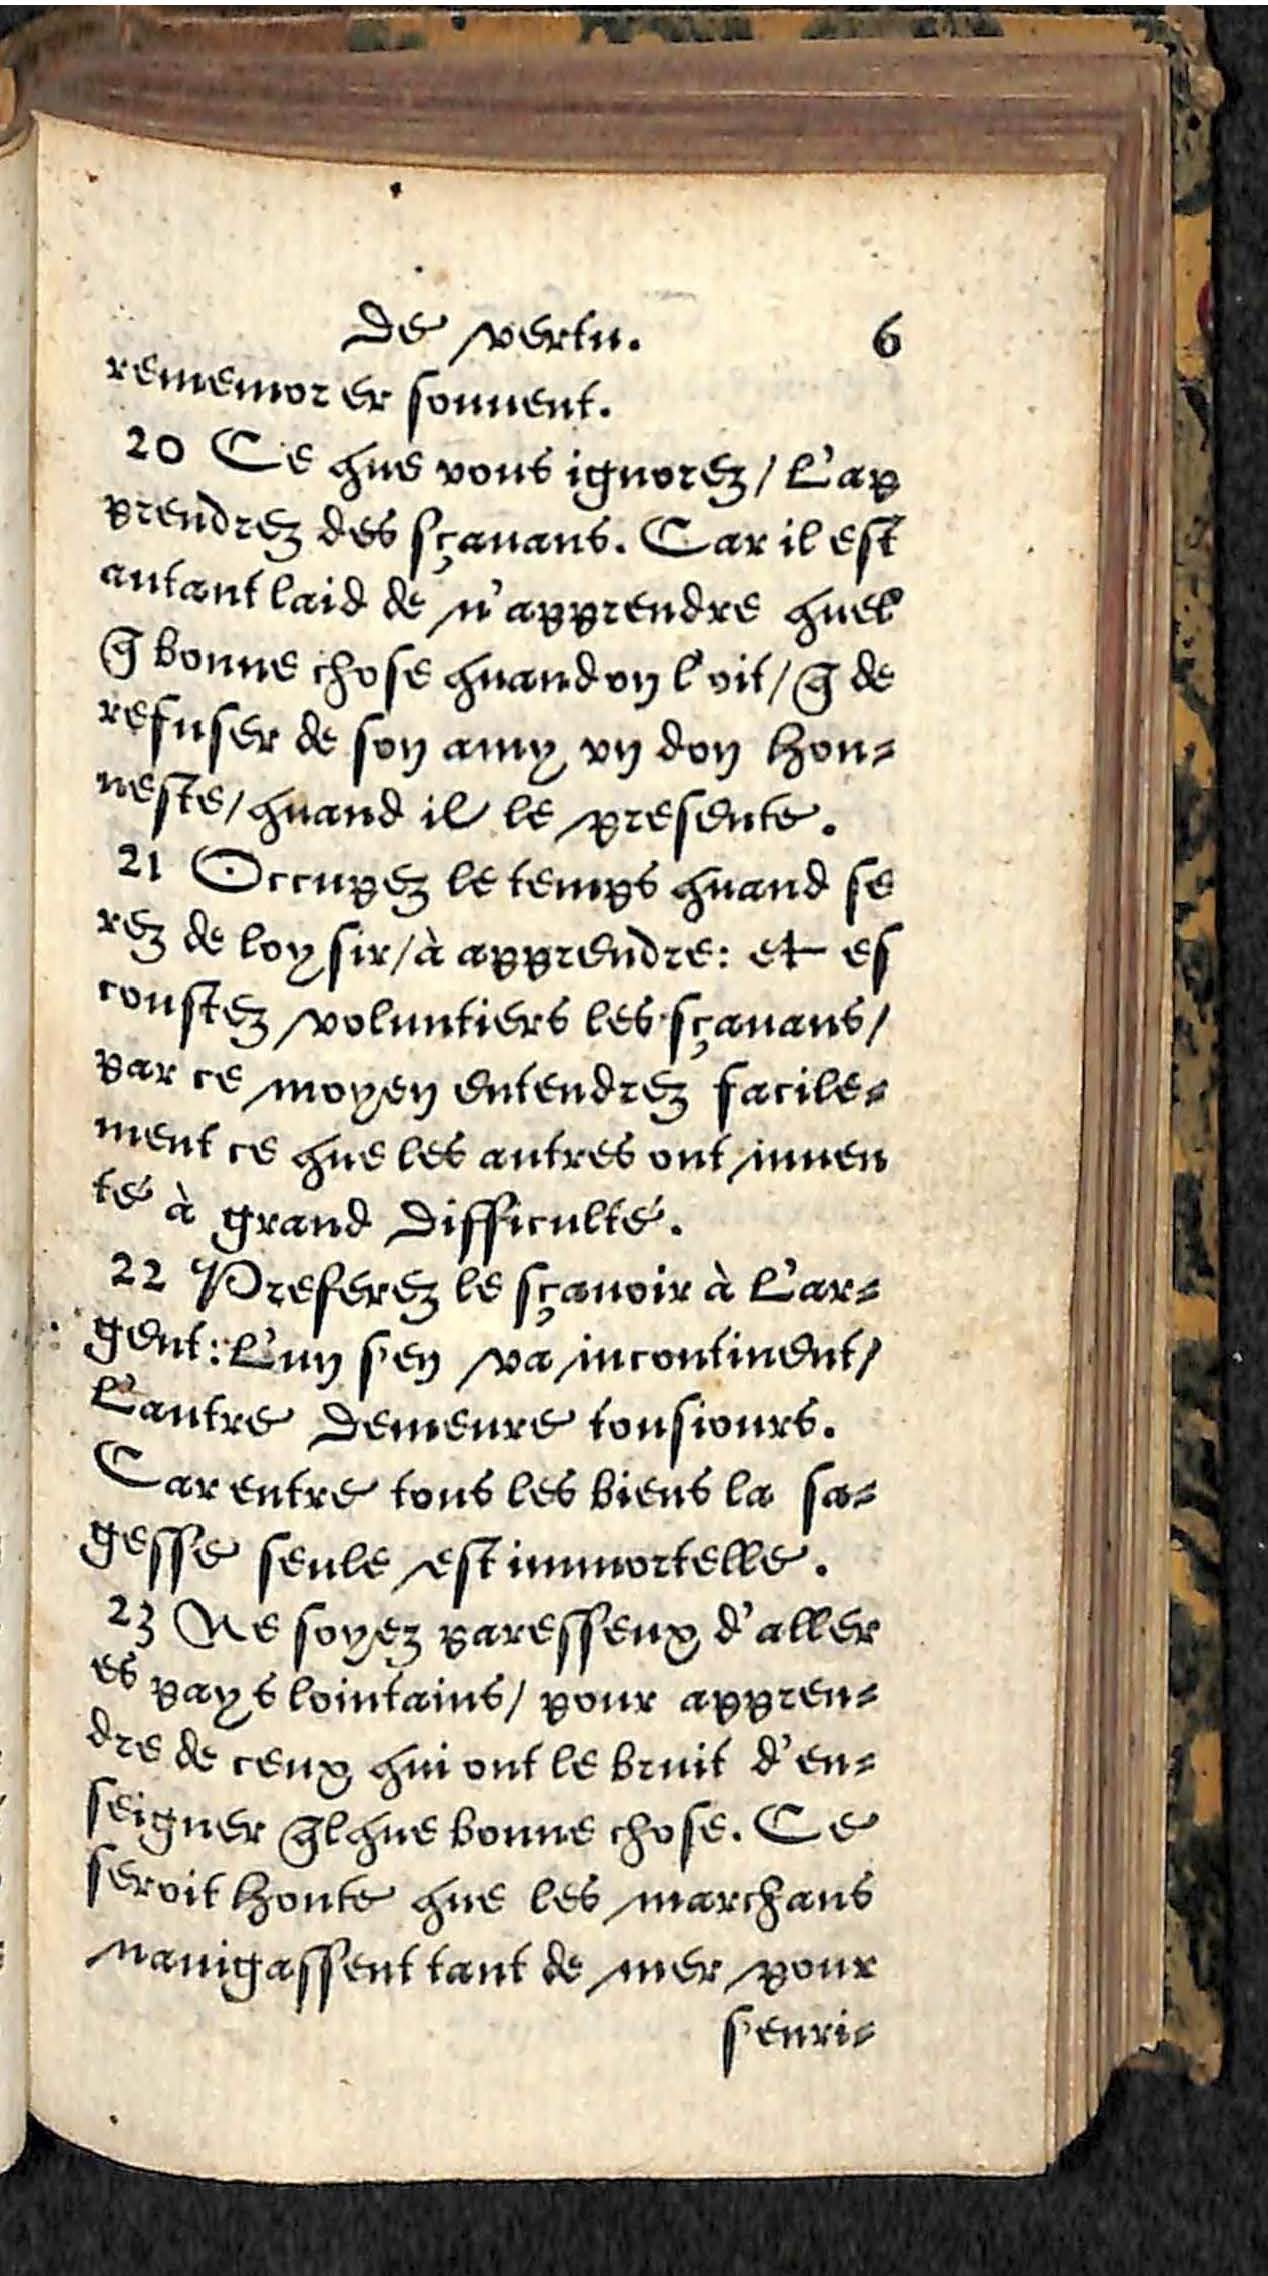 De vertu. 6
rememorer souuent.
20 Ce que vous ignorez/ l'ap
prendrez des sçauans. Car il est
autant laid de n'apprendre quel
q̃ bonne chose quand on l'oit/ q̃ de
refuser de son amy vn don hon-
neste/ quand il le presente.
21 Occupez le temps quand se
rez de loysir/ à apprendre: et es
coustez voluntiers les sçauans/
par ce moyen entendrez facile-
ment ce que les autres ont inuen
té à grand difficulté.
22 Preferez le sçauoir à l'ar-
gent: l'un s'en va incontinent/
l'autre demeure tousiours.
Car entre tous les biens la sa-
gesse seule est immortelle.
23 Ne soyez paresseux d'aller
es pays lointains/ pour appren-
dre de ceux qui ont le bruit d'en-
seigner q̃lque bonne chose. Ce
seroit honte que les marchans
nauigassent tant de mer pour
s'enri-